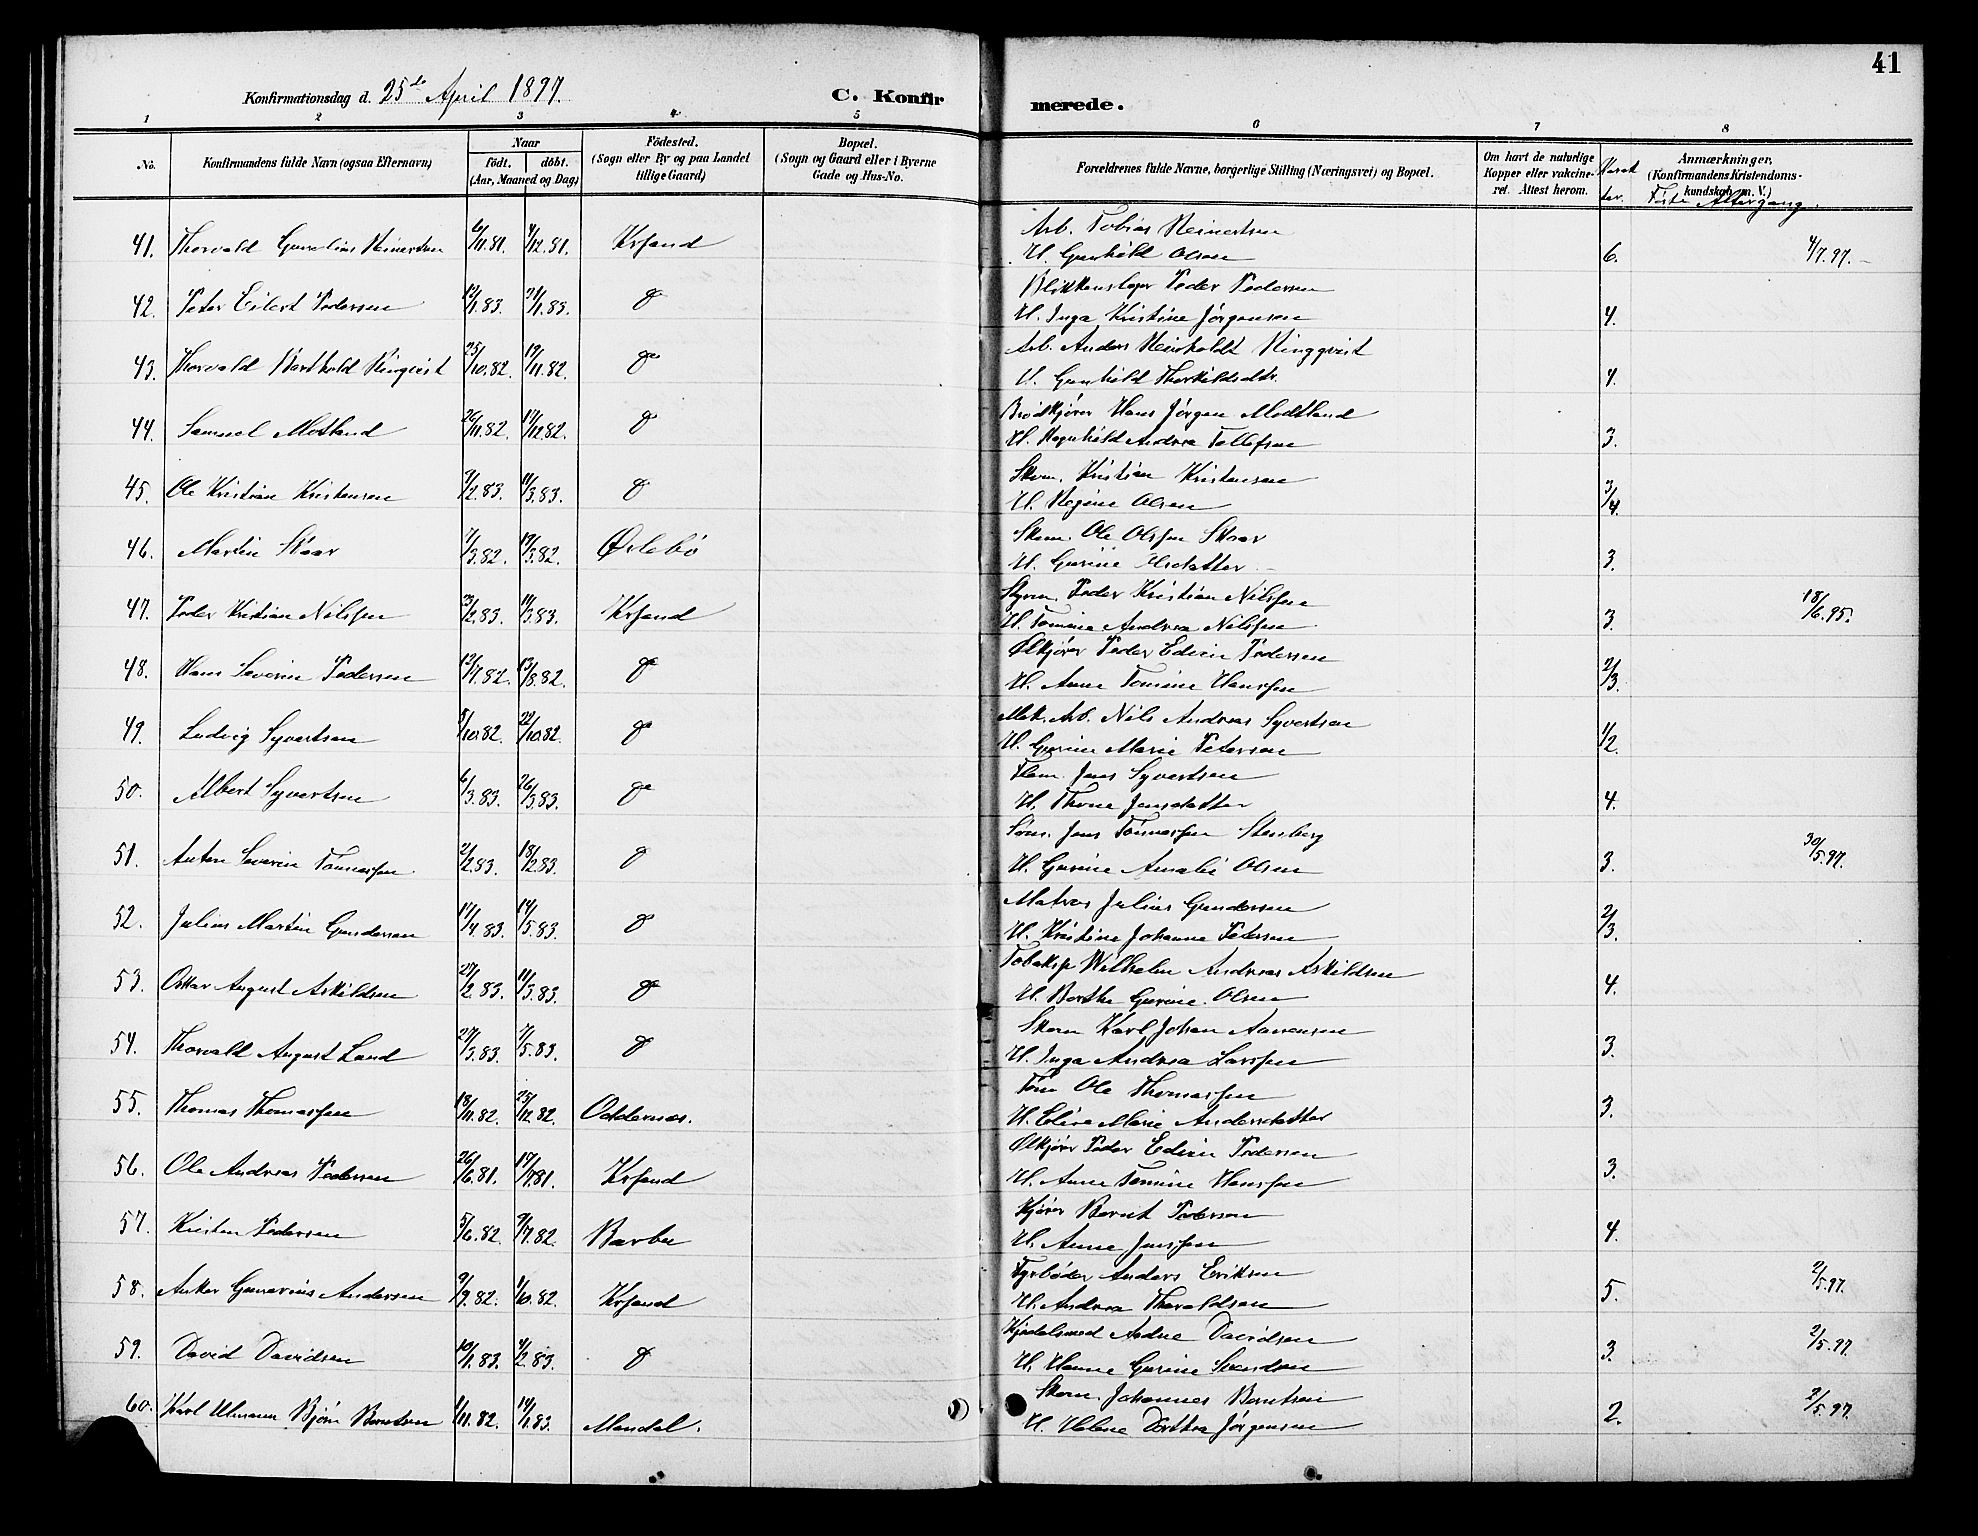 41
Konfirmationsdag d. 25de April 1897. C. Konfirmerede.
1 2 3 4 5 6 7 8
No. Konfirmandens fulde Navn (ogsaa Efternavn) Naar født. døbt. (Aar, Maaned og Dag) Fødested. (Sogn eller By og paa Landet tillige Gaard) Bopæl. (Sogn og Gaard eller i Byerne Gade og Hus-No. Forældrenes fulde Navne, borgerlige Stilling (Næringsvei) og Bopæl. Om havt de naturlige Kopper eller vakcineret. Attest herom. Karakter. Anmærkninger, (Konfirmandens Kristendomskundskab m. V.) Første Altergang.
41. Thorvald Gunelius Reinertsen 6/11.81. 4/12.81. Krsand Arb. Tobias Reinertsen
H. Gunhild Olsen 6. 4/7.97.
42. Peter Eilert Pedersen 12/1.83. 31/1.83. " Blikkenslager Peder Pedersen
H. Inga Kristine Jørgensen 4.
43. Thorvald Berthold Ringqvist 25/10.82. 19/11.82. " Arb. Anders Reinholdt Ringqvist
H. Gunhild Thorkildsdtr. 4.
44. Samuel Motland 26/11.82. 17/12.82. " Brødkjører Hans Jørgen Modtland
H. Ragnhild Andrea Tellefsen 3.
45. Ole Kristian Kristensen 9/2.83. 11/3.83. " Skom. Kristian Kristensen
H. Regine Olsen 3/4.
46. Martin Skaar 7/3.82. 19/3.82. Øslebø Skom. Ole Olssen Skaar
H. Gurine Olsdatter 3.
47. Peder Kristian Nilssen 23/2.83. 11/3.83. Krsand Styrm. Peder Kristian Nilssen
H. Tomine Andrea Nilssen 3. 18/6.95.
48. Hans Severin Pedersen 12/7.82. 13/8.82. " Ølkjører Peder Edvin Pedersen
H. Anne Tomine Hanssen 2/3.
49. Ludvig Syvertsen 8/10.82. 22/10.82. " Mek. Arb. Nils Andreas Syvertsen
H. Gurine Marie Petersen 1/2.
50. Albert Syvertsen 6/3.83. 26/3.83. " Jens Syvertsen
H. Thone Jensdatter 4.
51. Anton Severin Tønnessen 2/2.83. 18/2.83. " Jens Tønnessen Stenberg
H. Gurine Amalie Olsen 3. 30/5.97.
52. Julius Martin Gundersen 17/4.83. 14/5.83. " Matros Julius Gundersen
H. Kristine Johanne Petersen 2/3.
53. Oskar August Askildsen 27/2.83. 11/3.83. " Tobaksp Wilhelm Andreas Askildsen
H. Berthe Gurine Olsen 4.
54. Thorvald August Lund 27/3.83. 7/5.83. " Skom Karl Johan Aanensen
H. Inga Andrea Larssen 3.
55. Thomas Thomassen 18/11.82. 25/12.82. Oddernæs. Tøm Ole Thomassen
H. Elise Marie Andersdatter 3.
56. Ole Andreas Pedersen 26/6.81. 17/7.81. Krsand Ølkjører Peder Edvin Pedersen
H. Anne Tomine Hanssen 3.
57. Kristen Pedersen 5/6.82. 9/7.82. Barbu Kjører Bernt Pedersen
H. Anne Jenssen 4.
58. Anker Gunerius Andersen 9/9.82. 1/10.82. Krsand Fyrbøder Anders Eriksen
H. Andrea Theraldsen 5. 2/5.97.
59. David Davidsen 10/1.83. 4/2.83. " Kjedelsmed Andre Davidsen
H. Hanne Gurine Svendsen 3. 2/5.97.
60. Karl Ulmann Bjørn Berntsen 1/11.82. 14/1.83. Mandal. Skom. Johannes Berntsen
H. Helene Dorthea Jørgensen 2. 2/5.97.